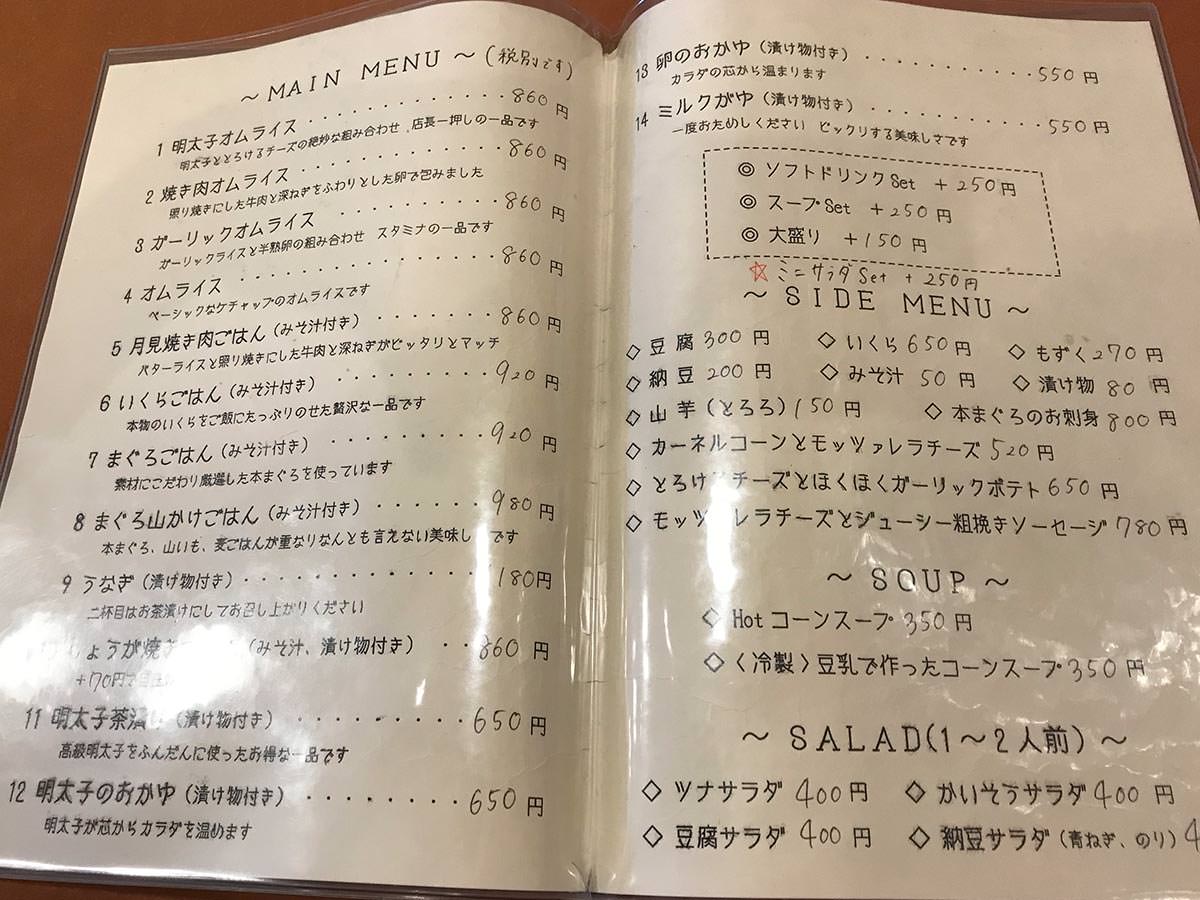 ～ MAIN MENU ～ (税別です)
1 明太子オムライス ・・・・・・・・・・ 860円
明太子ととろけるチーズの絶妙な組み合わせ 店長一押しの一品です
2 焼き肉オムライス ・・・・・・・・・・ 860円
照り焼きにした牛肉と深ねぎをふわりとした卵で包みました
3 ガーリックオムライス ・・・・・・・・ 860円
ガーリックライスと半熟卵の組み合わせ スタミナの一品です
4 オムライス ・・・・・・・・・・・・・ 860円
ベーシックなケチャップのオムライスです
5 月見焼き肉ごはん (みそ汁付き) ・・・・・・ 860円
バターライスと照り焼きにした牛肉と深ねぎがピッタリとマッチ
6 いくらごはん (みそ汁付き) ・・・・・・・・ 920円
本物のいくらをご飯にたっぷりのせた贅沢な一品です
7 まぐろごはん (みそ汁付き) ・・・・・・・・ 920円
素材にこだわり厳選した本まぐろを使っています
8 まぐろ山かけごはん (みそ汁付き) ・・・・・・ 980円
本まぐろ、山いも、麦ごはんが重なりなんとも言えない美味し です
9 うなぎ (漬け物付き) ・・・・・・・・・・・ 1180円
二杯目はお茶漬けにしてお召し上がりください
しょうが焼き (みそ汁、漬け物付き) ・・ 860円
+170円で
11 明太子茶漬け (漬け物付き) ・・・・・・・・・ 650円
高級明太子をふんだんに使ったお得な一品です
12 明太子のおかゆ (漬け物付き) ・・・・・・・・ 650円
明太子が芯からカラダを温めます
13 卵のおかゆ (漬け物付き) ・・・・・・・・・・・ 550円
カラダの芯から温まります
14 ミルクがゆ (漬け物付き) ・・・・・・・・・・・ 550円
一度おためしください ビックリする美味しさです
◎ ソフトドリンクSet +250円
◎ スープSet +250円
◎ 大盛り +150円
☆ ミニサラダSet +250円
～ SIDE MENU ～
◇ 豆腐 300円 ◇ いくら 650円 ◇ もずく 270円
◇ 納豆 200円 ◇ みそ汁 50円 ◇ 漬け物 80円
◇ 山芋 (とろろ) 150円 ◇ 本まぐろのお刺身 800円
◇ カーネルコーンとモッツァレラチーズ 520円
◇ とろけるチーズとほくほくガーリックポテト 650円
◇ モッツァレラチーズとジューシー粗挽きソーセージ 780円
～ SOUP ～
◇ Hot コーンスープ 350円
◇ 〈冷製〉豆乳で作ったコーンスープ 350円
～ SALAD(1～2人前) ～
◇ ツナサラダ 400円 ◇ かいそうサラダ 400円
◇ 豆腐サラダ 400円 ◇ 納豆サラダ (青ねぎ、のり) 4